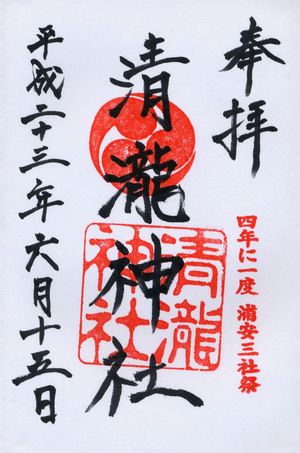 奉拝
四年に一度 浦安三社祭
清瀧神社
清瀧神社
平成二十三年六月十五日